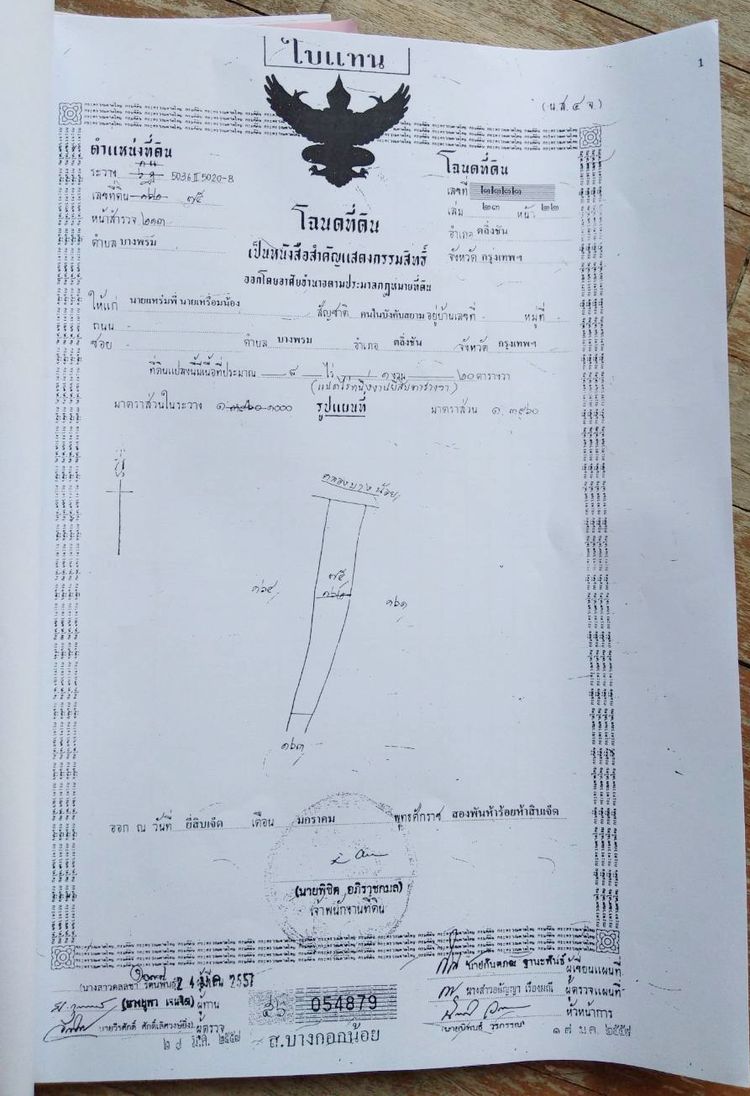 ใบแทน
1
(น.ส. ๔ จ.)
ตำแหน่งที่ดิน
ระวาง 5036 II 5020-8
เลขที่ดิน ๑๖๒ ๗๕
หน้าสำรวจ ๒๑๓
ตำบล บางพรม
โฉนดที่ดิน
เลขที่ ๒๒๒๒
เล่ม ๒๓ หน้า ๒๒
อำเภอ ตลิ่งชัน
จังหวัด กรุงเทพฯ
โฉนดที่ดิน
เป็นหนังสือสำคัญแสดงกรรมสิทธิ์
ออกโดยอาศัยอำนาจตามประมวลกฎหมายที่ดิน
ให้แก่ นายแหร่มพี่ นายเหรื่อมน้อง สัญชาติ คนในบังคับสยาม อยู่บ้านเลขที่ - หมู่ที่ -
ถนน -
ซอย - ตำบล บางพรม อำเภอ ตลิ่งชัน จังหวัด กรุงเทพฯ
ที่ดินแปลงนี้มีเนื้อที่ประมาณ ๘ ไร่ ๑ งาน ๒๐ ตารางวา
(แปดไร่หนึ่งงานยี่สิบตารางวา)
มาตราส่วนในระวาง ๑:๓๙๖๐ ๑๐๐๐ รูปแผนที่ มาตราส่วน ๑:๓๙๖๐
น
คลองบางน้อย
๗๕
๑๖๒
๑๖๕
๑๖๑
๑๖๓
ออก ณ วันที่ ยี่สิบเจ็ด เดือน มกราคม พุทธศักราช สองพันห้าร้อยห้าสิบเจ็ด
(นายพิชิต อภิราชกมล)
เจ้าพนักงานที่ดิน
2 4 มี.ค. 2557
ผู้ทาน
นายวีรศักดิ์ ศักดิ์เลิศวงษ์ยิ่ง ผู้ตรวจ
054879
ส.บางกอกน้อย
ฐานะพันธุ์ ผู้เขียนแผนที่
นางสาวอัญญา เรืองมณี ผู้ตรวจแผนที่
หัวหน้าการ
(นายนิพันธ์ วรกรรณ)
๑๗ ม.ค. ๒๕๕๗